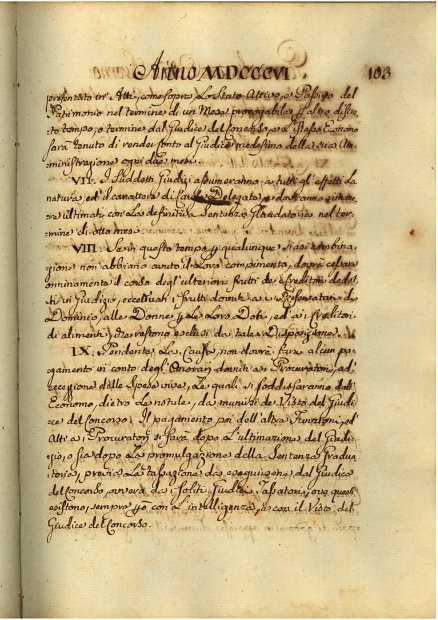 Anno MDCCCVI. 103
presentato in Atti, come sopra lo Stato Attivo, e Passivo del
Patrimonio nel termine di un Mese prorogabile ad altro discre-
to tempo, o termine dal Giudice del Concorso, e l'istesso Economo
sarà tenuto di render conto al Giudice medesimo della sua Am-
ministrazione ogni due mesi.
VII. I suddetti Giudizj assumeranno a tutti gli effetti la
natura, ed il carattere di Causa Delegata, e dovranno
ultimati con la definitiva Sentenza Graduatoria nel ter-
mine di otto mesi.
VIII. Se in questo tempo per qualunque siasi combina-
zione non abbiano avuto il loro compimento, dovrà cessare
onninamente il corso degl'ulteriori frutti de' Creditori dedot-
ti in Giudizio, eccettuati i frutti dovuti a' Riservatari di
Dominio, alle Donne per le loro Doti, ed a' Creditori
di alimenti, che restono esclusi da tale Disposizione.
IX. Pendente la Causa, non dovrà farsi alcun pa-
gamento in conto degl'Onorarj dovuti a' Procuratori, ad
eccezione delle spese vive, le quali si soddisfaranno dall'
Economo, dietro le notule, da munirsi de Visto del Giudi-
ce del Concorso. Il pagamento poi dell'altre Funzioni, ed
Atti a' Procuratori si farà dopo l'ultimazione del Giudi-
zio, o sia dopo la promulgazione della Sentenza Gradua-
toria, previa la tassazione da eseguirsene dal Giudice
del Concorso ovvero da' soliti Giudici Tassatori, ove questi
esistono, sempre però con l'intelligenza, e con il Visto del
Giudice del Concorso.